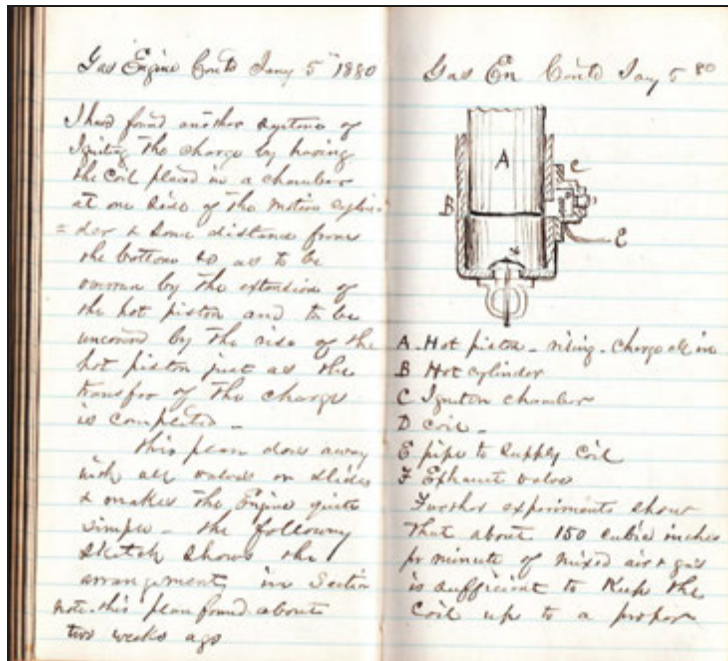 Gas Engine Contd Jany 5th 1880
I have found another system of
Igniting the charge by having
the coil placed in a chamber
at one side of the motion cylin
= der & some distance from
the bottom so as to be
overrun by the extension of
the hot piston and to be
uncovered by the rise of the
hot piston just as the
transfer of the charge
is completed -
This plan does away
with all valves or slides
& makes the Engine quite
simple - the following
sketch shows the
arrangement in Section
note - this plan found about
two weeks ago
Gas En Contd Jay 5 80
A
B
C
D
E
A - Hot piston - rising - charge all in
B Hot cylinder
C Igniton chamber
D coil -
E pipe to supply coil
F Exhaust valve
Further experiments show
that about 150 cubic inches
pr minute of mixed air & gas
is sufficient to Keep the
Coil up to a proper